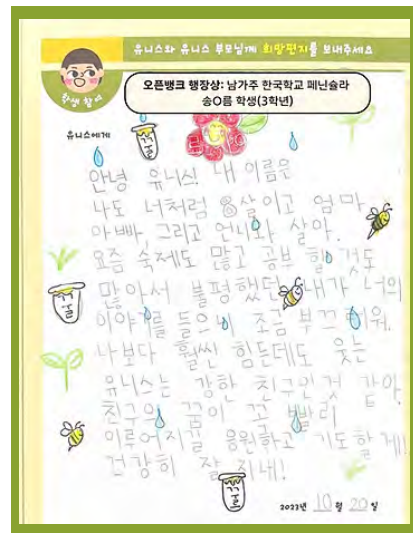 유니스와 유니스 부모님께 희망편지를 보내주세요
학생 참여
오픈뱅크 행장상: 남가주 한국학교 페닌슐라
송O름 학생(3학년)
유니스에게
꿀
안녕 유니스! 내 이름은
나도 너처럼 8살이고 엄마,
아빠, 그리고 언니와 살아.
요즘 숙제도 많고 공부 할 것도
많아서 불평했던 내가 너의
꿀
이야기를 들으니 조금 부끄러워.
나보다 훨씬 힘든데도 웃는
유니스는 강한 친구인것 같아.
친구의 꿈이 꼭 빨리
이루어지길 응원하고 기도할게!
건강히 잘 지내!
꿀
2023년 10월 20일